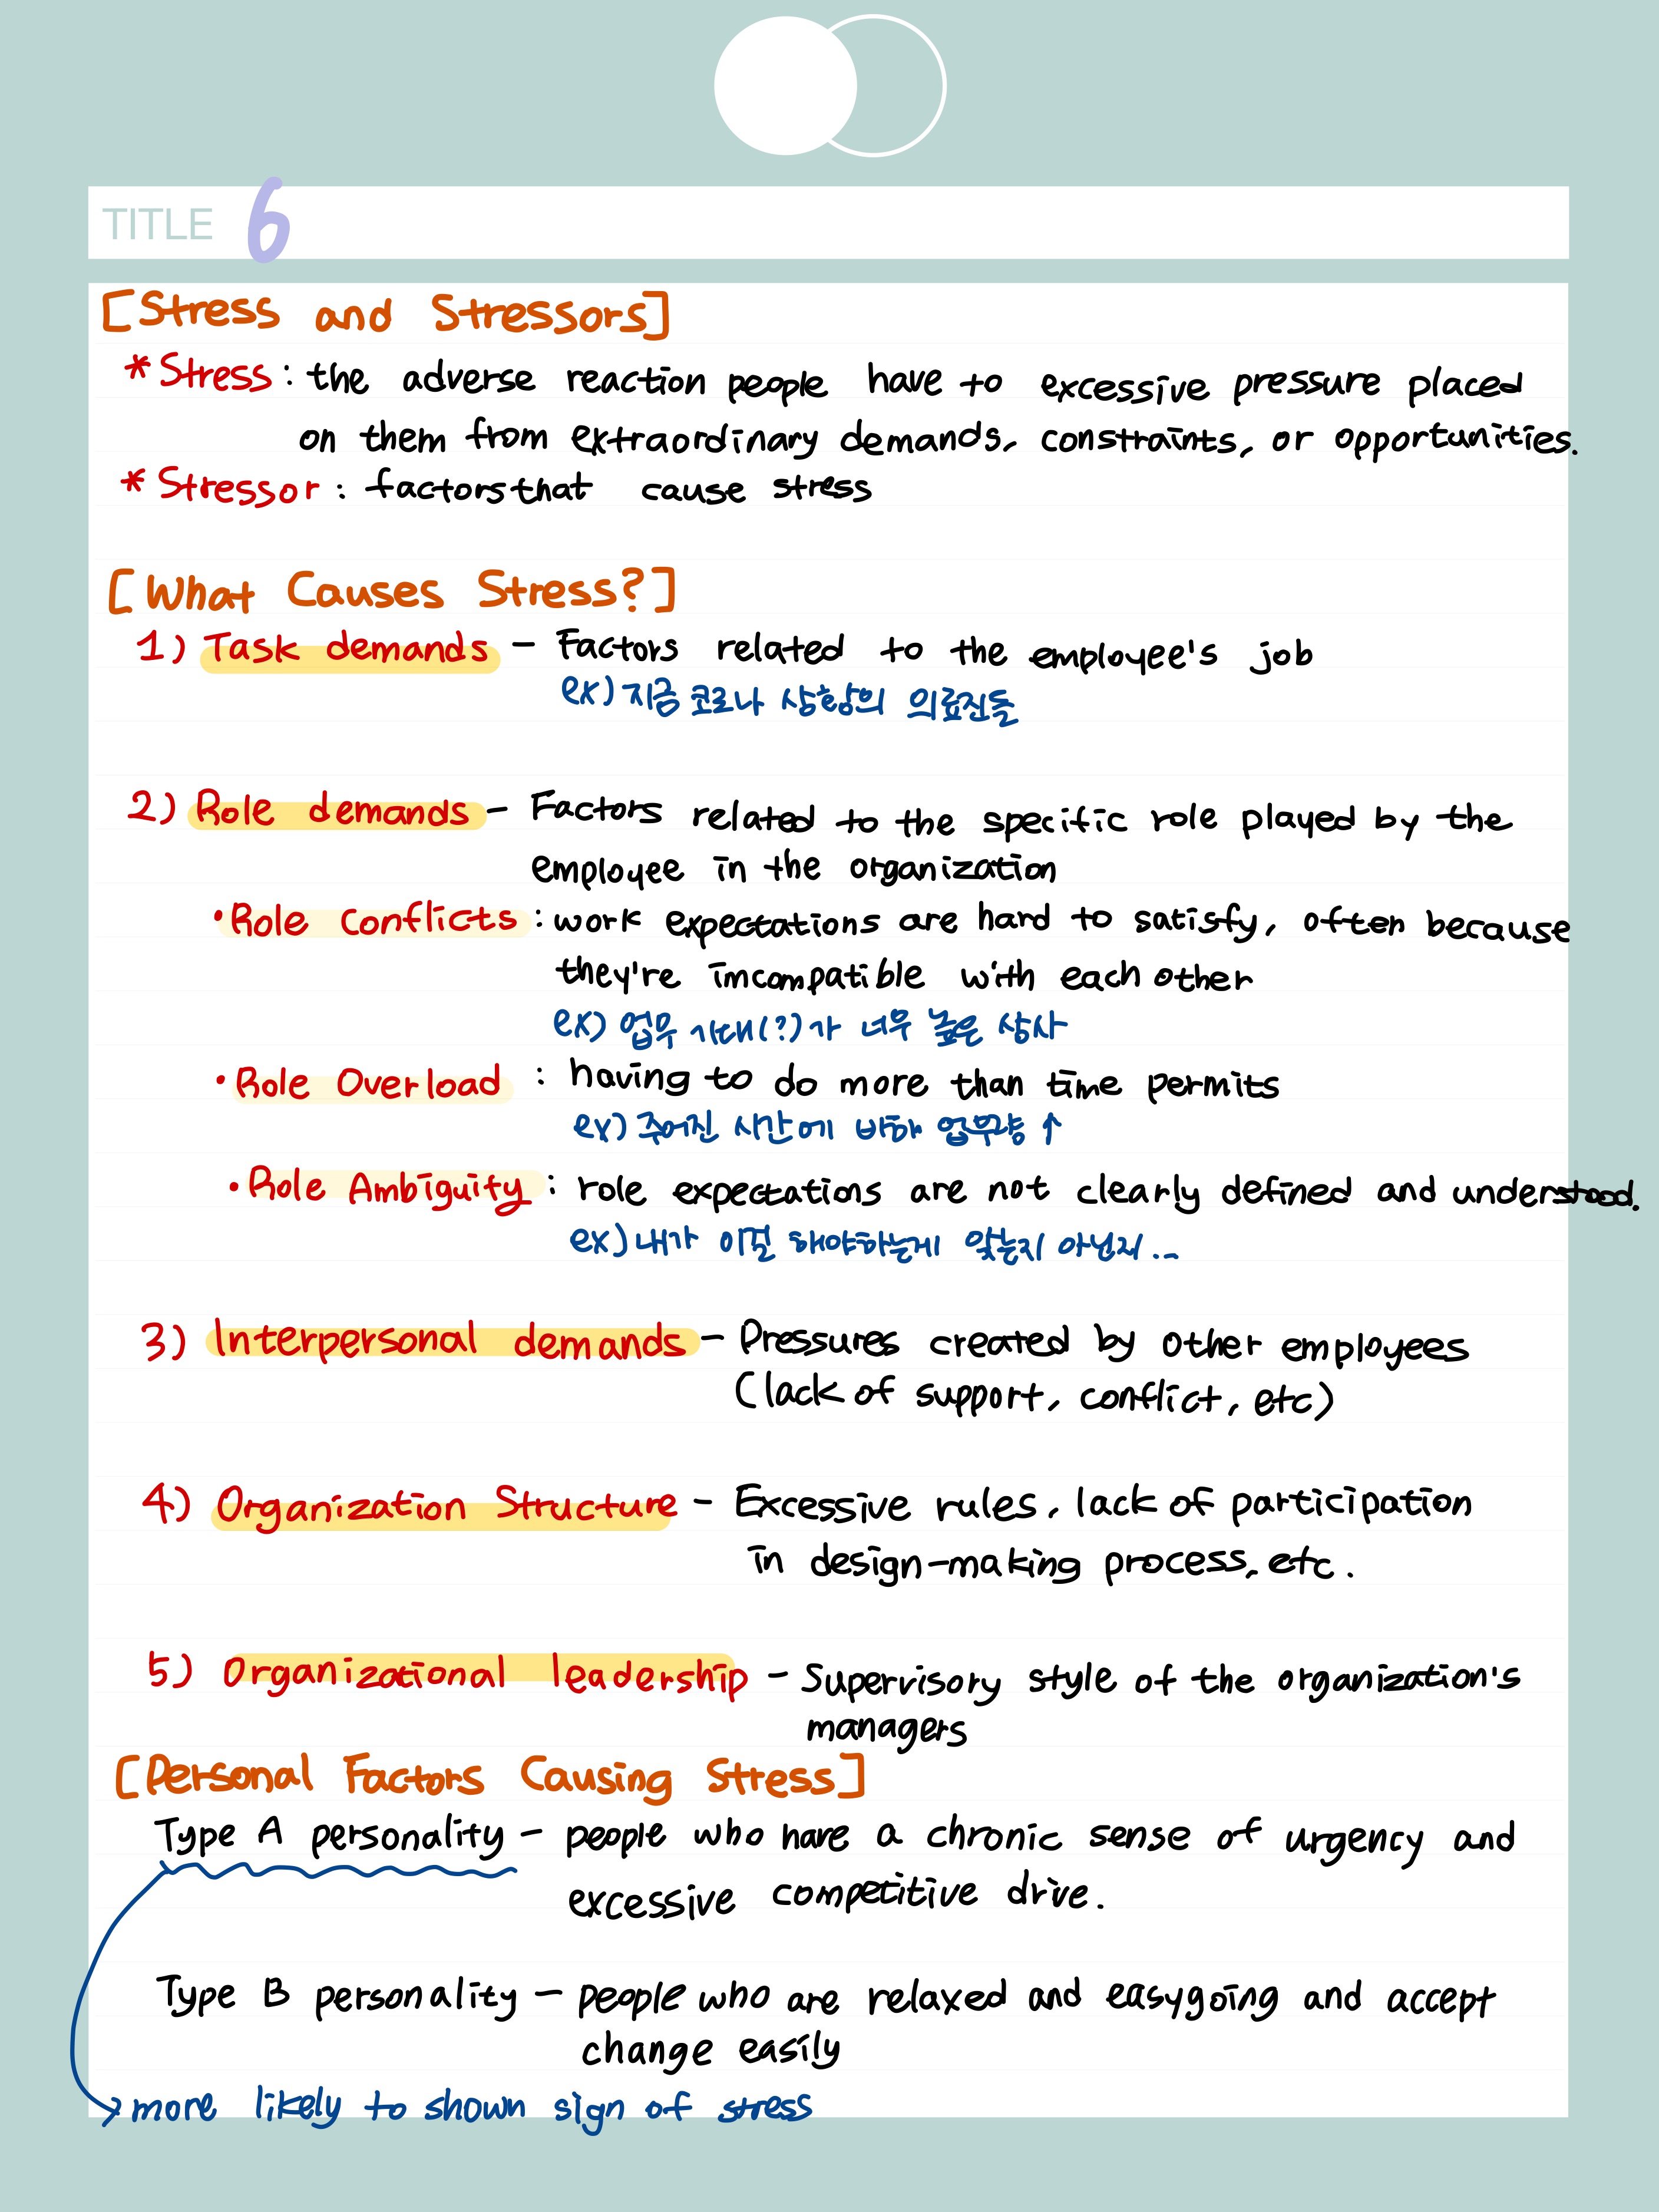 TITLE 6
[Stress and Stressors]
* Stress : the adverse reaction people have to excessive pressure placed
on them from extraordinary demands, constraints, or opportunities.
* Stressor : factors that cause stress
[What Causes Stress?]
1) Task demands - Factors related to the employee's job
ex) 지금 코로나 상황의 의료진들
2) Role demands - Factors related to the specific role played by the
employee in the organization
• Role Conflicts : work expectations are hard to satisfy, often because
they're incompatible with each other
ex) 업무 기대(?)가 너무 높은 상사
• Role Overload : having to do more than time permits
ex) 주어진 시간에 비해 업무량 ↑
• Role Ambiguity : role expectations are not clearly defined and understood.
ex) 내가 이걸 해야하는게 맞는지 아닌지...
3) Interpersonal demands - Pressures created by other employees
(lack of support, conflict, etc)
4) Organization Structure - Excessive rules, lack of participation
in design-making process, etc.
5) Organizational leadership - Supervisory style of the organization's
managers
[Personal Factors Causing Stress]
Type A personality - people who have a chronic sense of urgency and
excessive competitive drive.
Type B personality - people who are relaxed and easygoing and accept
change easily
more likely to shown sign of stress